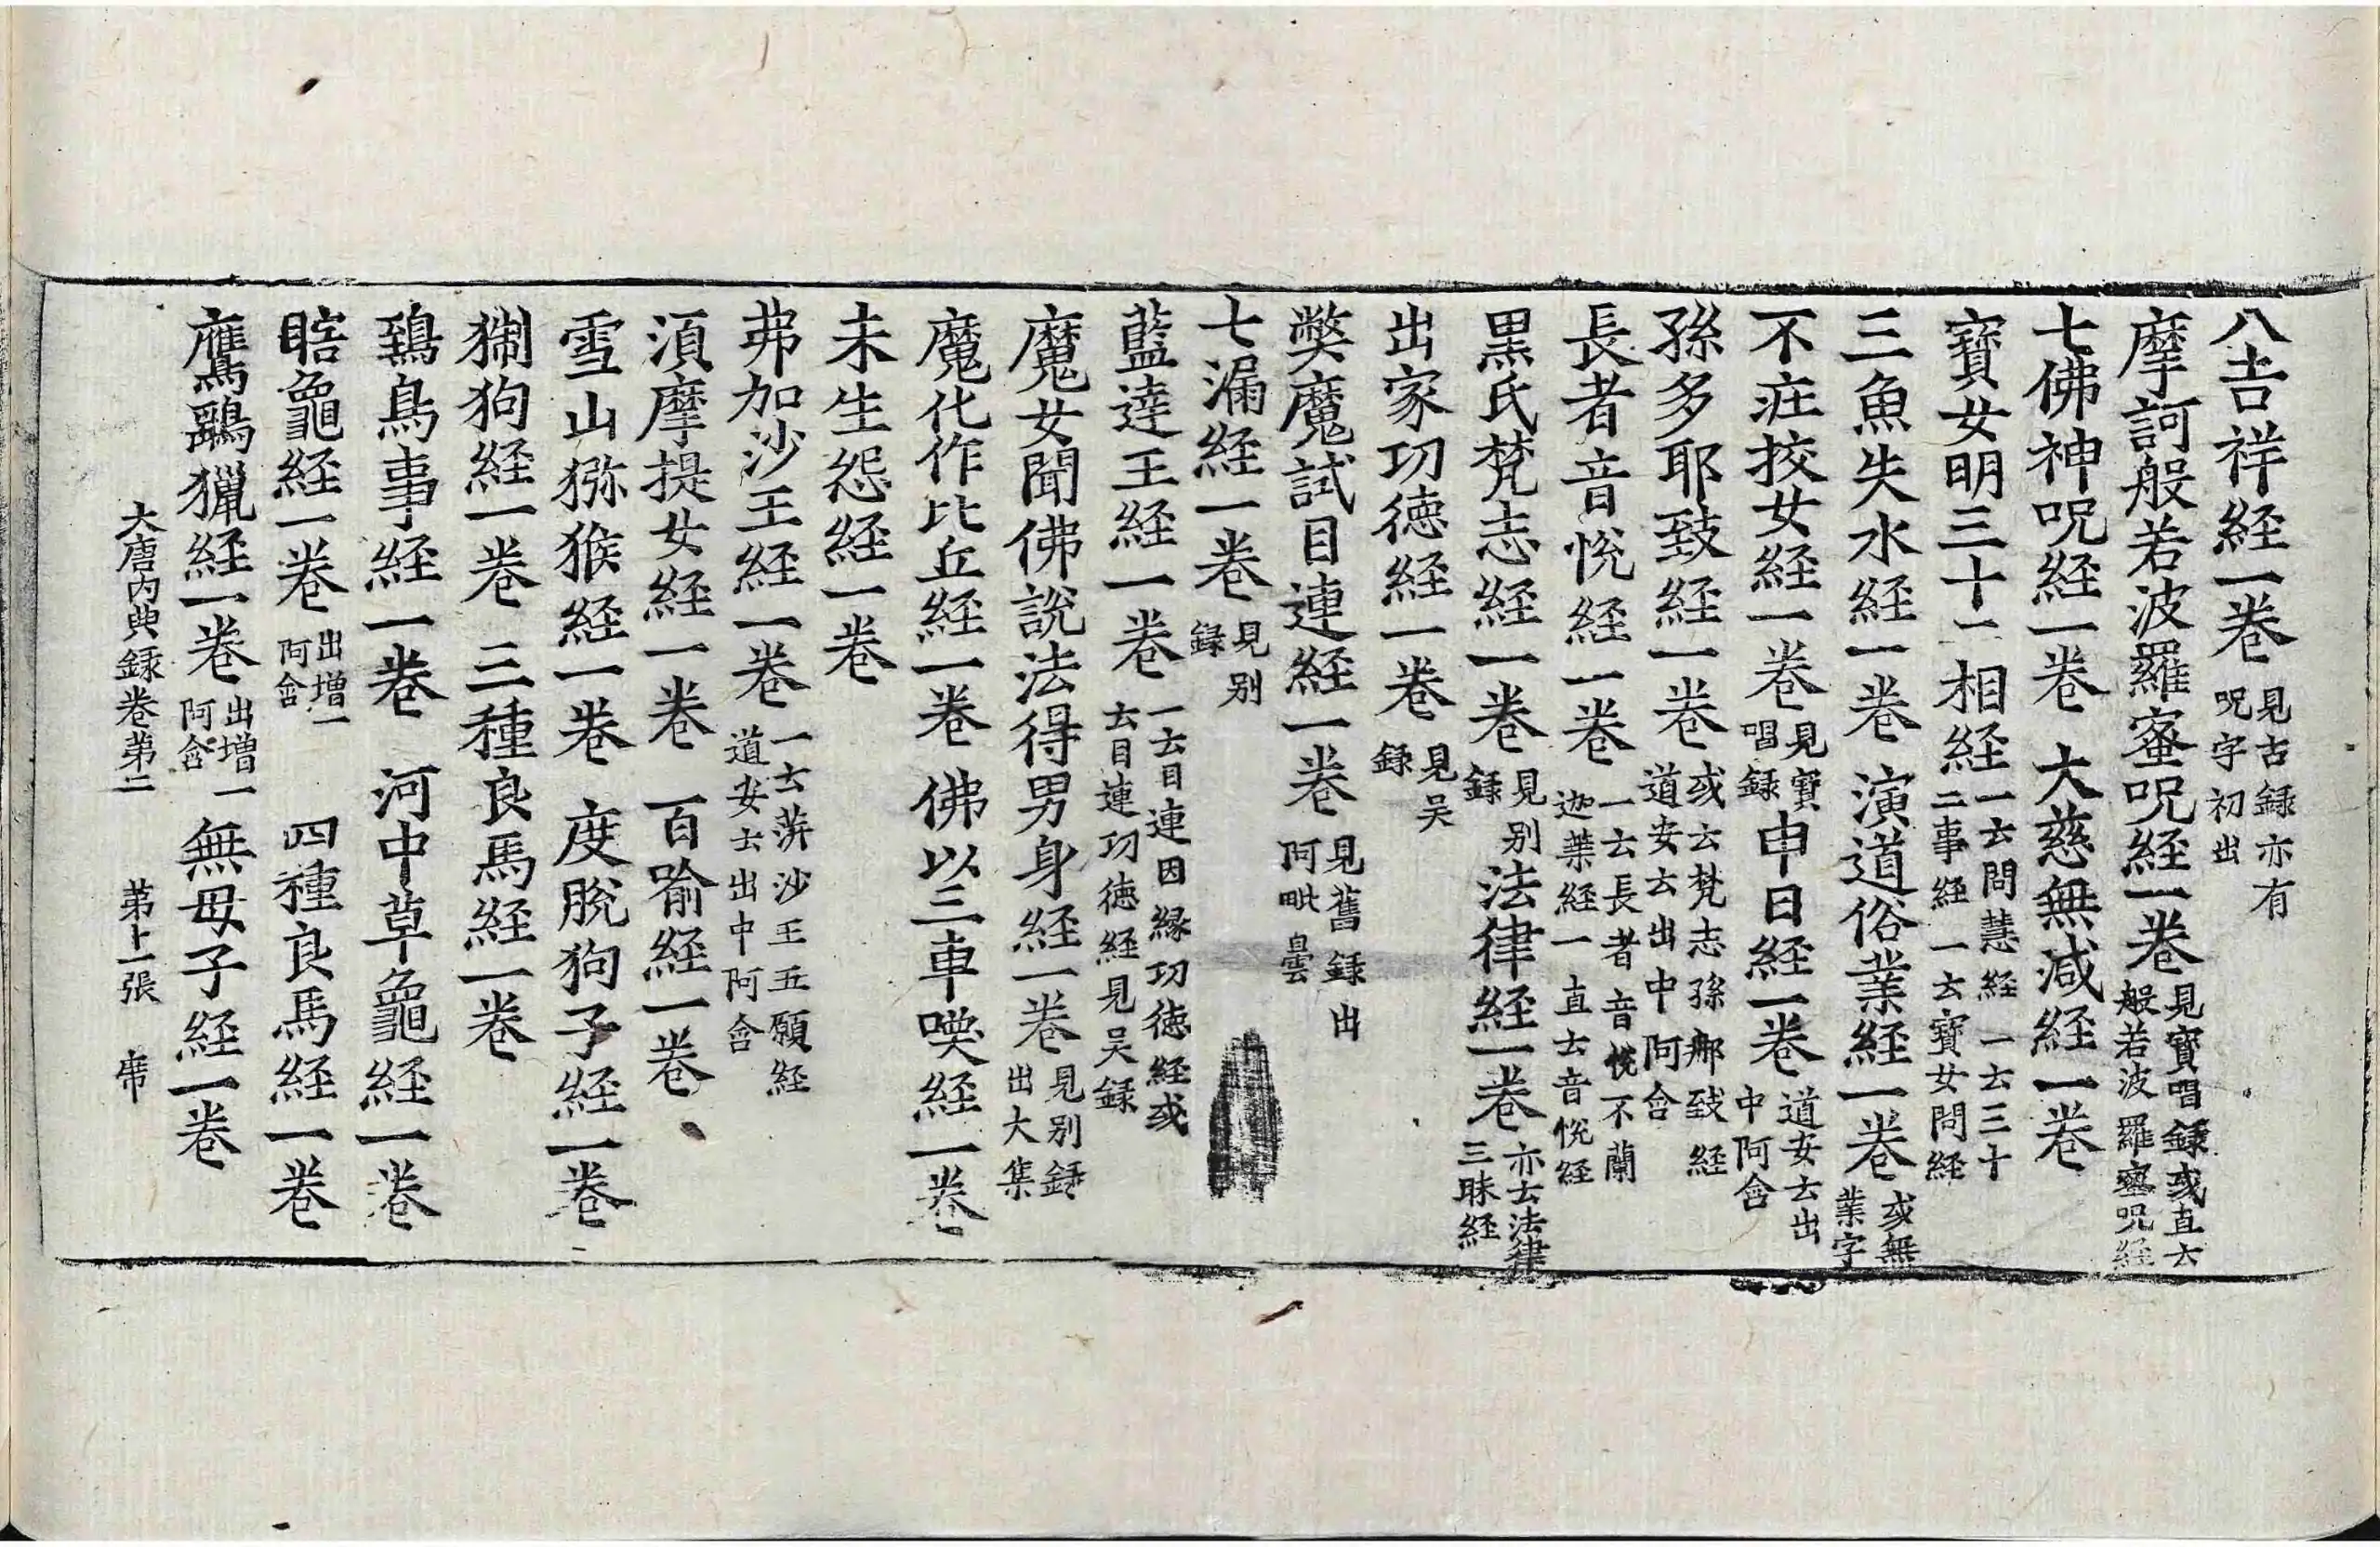 八吉祥経一巻見古録亦有呪字初出
摩訶般若波羅蜜呪経一巻見寶唱録或直云般若波羅蜜呪経
七佛神呪経一巻 大慈無減経一巻
寶女明三十二相経一云問慧経一云三十二事経一云寶女問経
三魚失水経一巻 演道俗業経一巻或無業字
不莊挍女経一巻見寶唱録申日経一巻道安云出中阿含
孫多耶致経一巻或云梵志孫那致経道安云出中阿含
長者音恱経一巻一云長者音恱不蘭迦葉経一直云音恱経
黒氏梵志経一巻見别録法律経一巻亦云法律三昧経
出家功徳経一巻見吴録
弊魔試目連経一巻見舊録出阿毗曇
七漏経一巻見别録
藍達王経一巻一云目連因縁功徳経或云目連功徳経見吴録
魔女聞佛說法得男身経一巻見别録出大集
魔化作比丘経一巻 佛以三車喚経一巻
未生怨経一巻
弗加沙王経一巻一云蓱沙王五願経道安云出中阿含
湏摩提女経一巻 百喻経一巻
雪山猕猴経一巻 度脫狗子経一巻
猘狗経一巻 三種良馬経一巻
鵄鳥事経一巻 河中草龜経一巻
瞎龜経一巻出増一阿含 四種良馬経一巻
鷹鷂獵経一巻出増一阿含 無母子経一巻
大唐内典録巻第二 第十一張 席